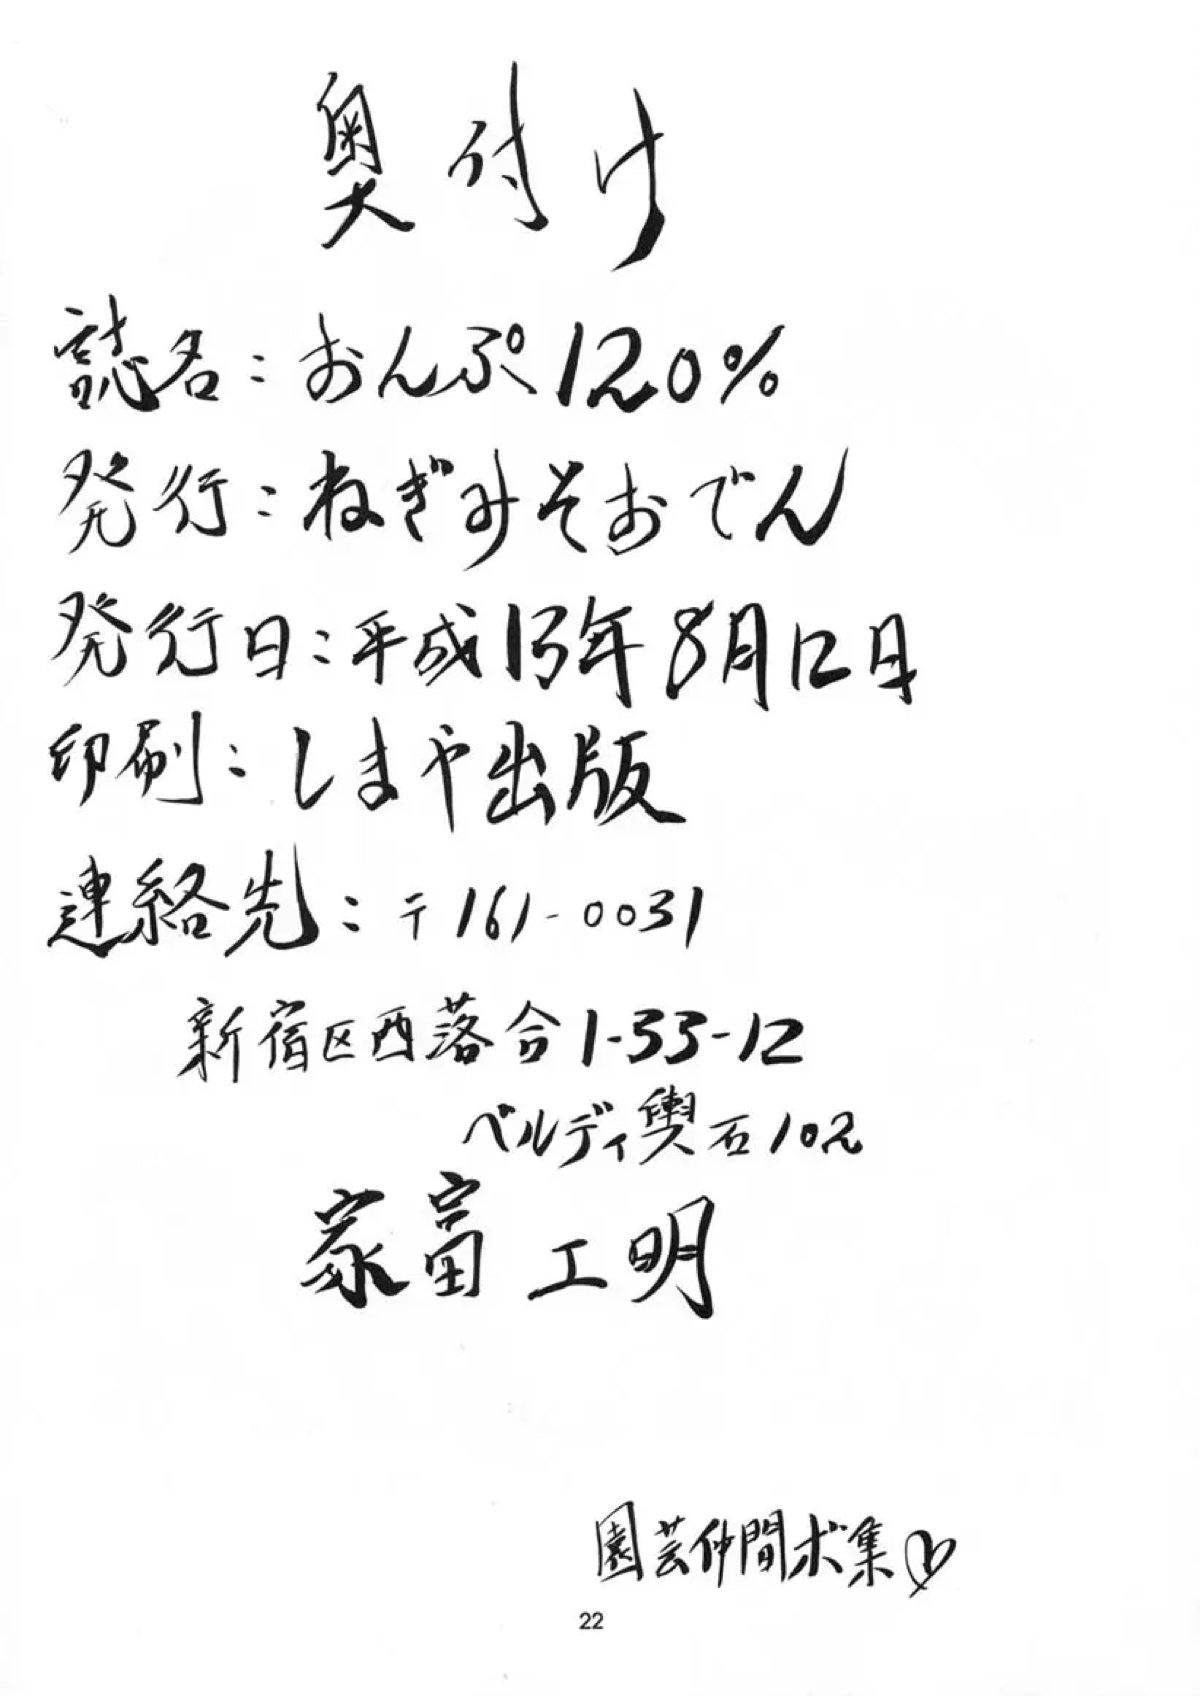 奥付け
誌名：おんぷ120%
発行：ねぎみそおでん
発行日：平成13年8月12日
印刷：しまや出版
連絡先：〒161-0031
新宿区西落合1-33-12
ベルディ輿石102
家富工明
園芸仲間ボ集
22